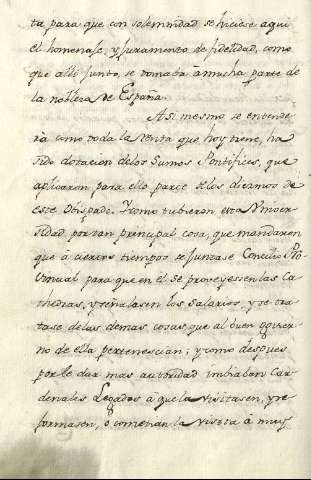 ta para que con solemnidad se hiciese aqui
el homenaje, y juramento de fidelidad, como
que alli junto, se tomaba à mucha parte de
la nobleza de España.
Asi mesmo se entende
rà como toda la renta que hoy tiene, ha
sido dotacion de los Sumos Pontifices, que
aplicaron para ello parte de los diezmos de
este Obispado. Y como tubieron esta Univer
sidad por tan principal cosa, que mandaron
que à ciertos tiempos se juntase Concilio Pro
vincial para que en èl se proveyessen las Ca
thedras, y señalasen los Salarios, y se tra
tase de las demas cosas que al buen govier
no de ella pertenescian; y como despues
por le dar mas autoridad imbiaban Car
denales Legados à que la visitasen, y re
formasen, o cometian la visita à muy